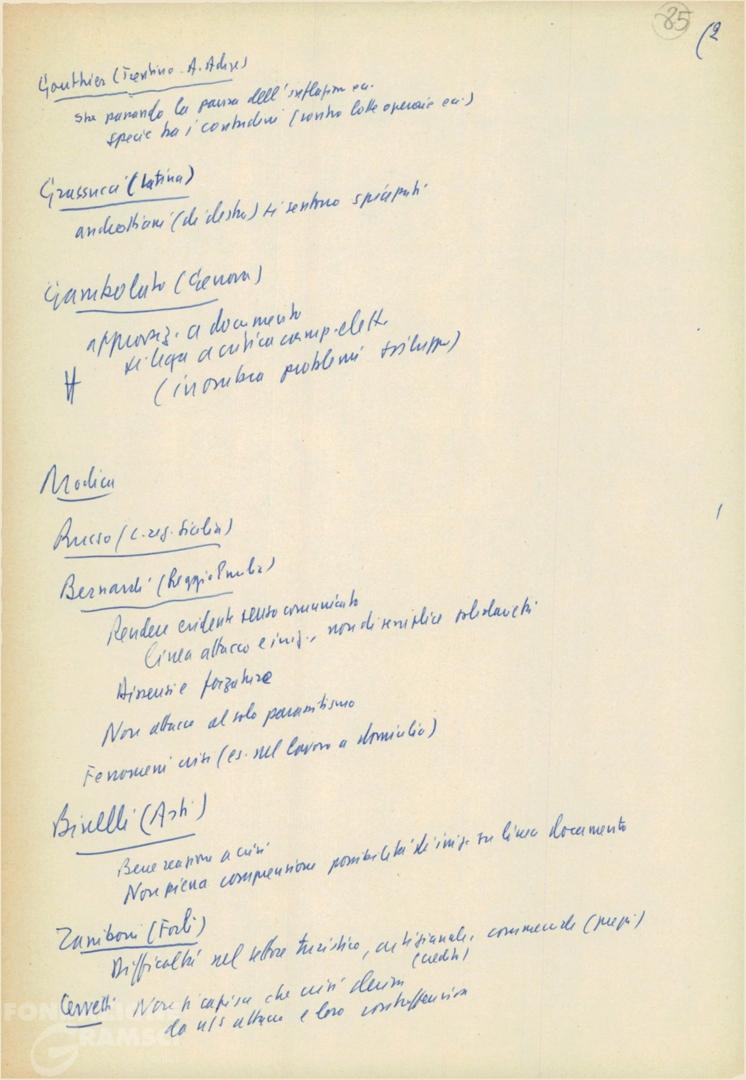 85
(2
Gouthier (Trentino-A. Adige)
sta passando la paura dell'inflazione ecc.
specie tra i contadini (contro lotte operaie ecc.)
Grassucci (Latina)
andreottiani (di destra) si sentono spiazzati
Gambolato (Genova)
approvaz. a documento
si lega a critica camp. elett.
(in ombra problemi sviluppo)
Modica
Russo (C. reg. Sicilia)
Bernardi (Reggio Emilia)
Rendere evidente senso comunicato
Linea attacco e iniz., non di semplice solidarietà
Dissensi e forzature
Non attacco al solo parassitismo
Fenomeni crisi (es. nel lavoro a domicilio)
Binelli (Asti)
Bene reazione a crisi
Non piena comprensione possibilità di iniz. su linea documento
Zaniboni (Forlì)
Difficoltà nel settore turistico, artigianale, commerciale (prezzi)
(crediti)
Cervetti Non si capisce che crisi deriva
da ns attacco e loro controffensiva
FONDAZIONE
GRAMSCI